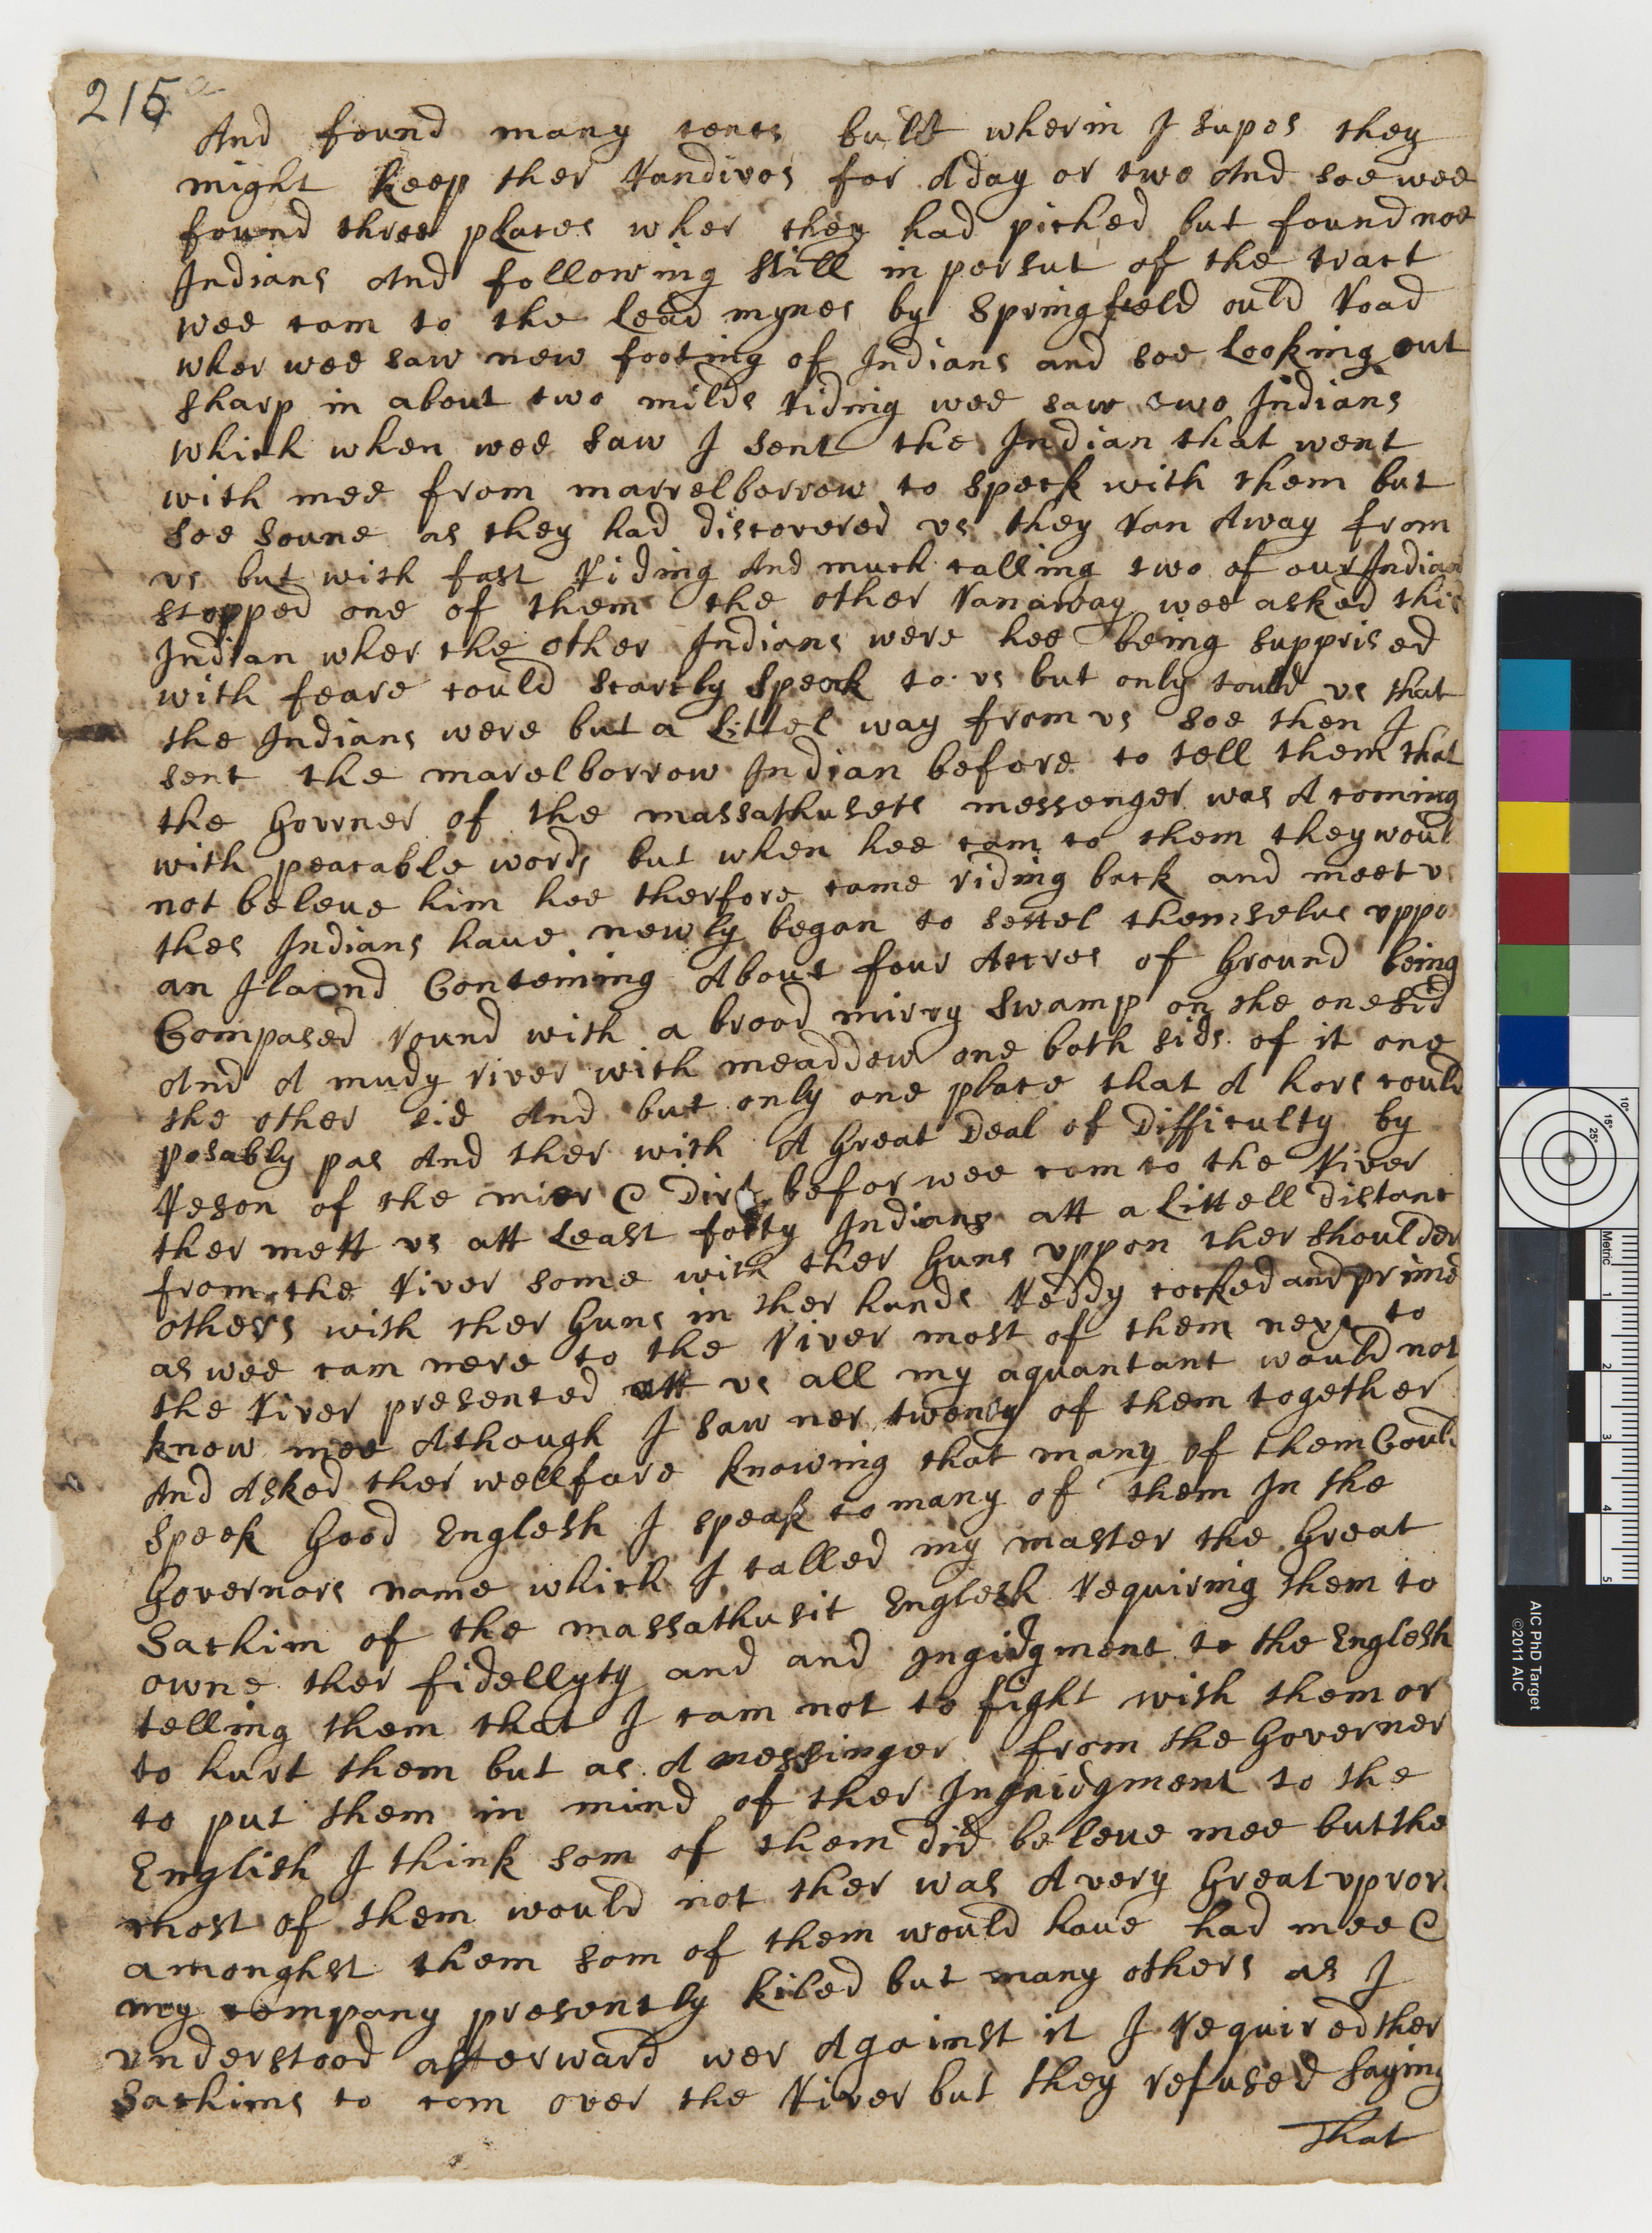 215a
And found many tents bult wherin I supos they
might keep ther Randivos for A day or two And soe wee
found three places wher they had piched but found noe
Indians And following still in persut of the tract
wee cam to the Lead mynes by Springfeeld ould Road
wher wee saw new footing of Indians and soe Looking out
sharp in about two milds riding wee saw two Indians
which when wee saw I sent the Indian that went
with mee from marrelborrow to speek with them but
soe soune as they had discovered vs they Ran Away from
vs but with fast Riding And much calling two of our Indian
stopped one of them the other Ran away wee asked this
Indian wher the other Indians were hee being supprised
with feare could scarcly speack to vs but only tould vs that
the Indians were but a Littel way from vs soe then I
sent the marelborrow Indian before to tell them that
the Governer of the massathusets messenger was A coming
with peacable words but when hee cam to them they woul
not beleue him hee therfore came riding back and meet vs
thes Indians haue newly began to settel themselus vppo
an Ilaond Conteining About four Accres of Ground being
Compased round with a broad mirry swamp on the one sid
And A mudy river with meaddow one both sids of it one
the other sid And but only one place that A hors could
posably pas And ther with A Great Deal of Difficulty by
Reson of the mier & Dirt befor wee com to the River
ther mett vs att Least forty Indians att a Littell Distanc
from the River some with ther Guns vppon ther shoulder
others with ther Guns in ther hands Reddy cocked and prime
as wee cam nere to the River most of them next to
the River presented att vs all my aquantanc would not
know mee Athough I saw ner twenty of them together
And Asked ther wellfare knowing that many of them Could
speek Good Englesh I speak to many of them In the
Governors name which I called my master the Great
Sachim of the massathusit Englesh Requiring them to
owne ther fidellyty and and Ingidgment to the Englesh
telling them that I cam not to fight with them or
to hurt them but as A messinger from the Governer
to put them in mind of ther Ingaidgment to the
English I think som of them did beleue mee but the
most of them would not ther was A very Great vpror
amonghst them som of them would haue had mee &
my company presently kiled but many others as I
vnderstood afterward wer Against it I Required ther
Sachims to com over the River but they refused saying
That
AIC PhD Target
©2011 AIC
Metric
1
2
3
4
5
10°
15°
25°